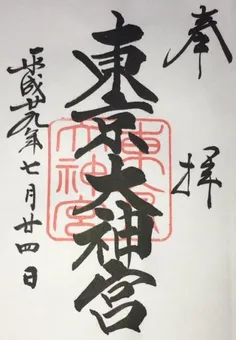 奉
拝
東京大神宮
東京大神宮
平成廿九年七月廿四日